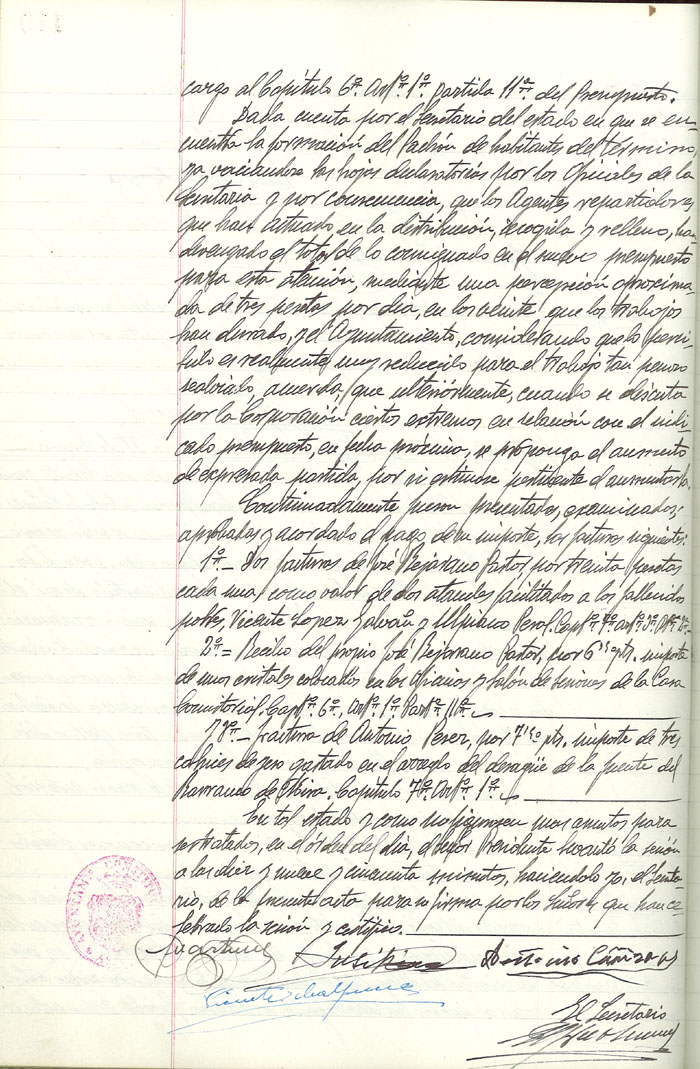 cargo al Capítulo 6º. Artº. 1º. partida 11ª. del Presupuesto.
Dada cuenta por el Secretario del estado en que se en-
cuentra la formación del Padrón de habitantes del término,
ya vaciandose las hojas declaratorias por los Oficiales de la
Secretaria y por consecuencia, que los Agentes repartidores
que han actuado en la distribución, recogida y relleno, han
devengado el total de lo consignado en el nuevo presupuesto
para esta atención, mediante una percepción aproxima-
da de tres pesetas por dia, en los veinte que los trabajos
han durado, y el Ayuntamiento, considerando que lo perci-
bido es realmente muy reducido para el trabajo tan penoso
realizado, acuerda, que ulteriormente, cuando se discuta
por la Corporación ciertos extremos en relación con el indi-
cado presupuesto, en fecha próxima, se proponga el aumento
de expresada partida, por si estimase pertinente el aumentarla.
Continuadamente fueron presentadas, examinadas,
aprobadas y acordado el pago de su importe, las facturas siguientes:
1º.- Dos facturas de José Bejarano Pastor por treinta pesetas
cada una como valor de dos ataudes facilitados a los fallecidos
pobres, Vicente Lopez Galvañ y Ulpiano Perol. Capº. 7º. artº.
2º.= Recibo del propio José Bejarano Pastor, por pts. importe
de unos cristales colocados en las oficinas y salón de sesiones de la Casa
Consistorial. Capº. 6º, Artº. 1º. Partª. 11ª.
Y 3º.- factura de Antonio Perez, por 7'50 pts. importe de tres
cahices de yeso gastado en el arreglo del desagüe de la fuente del
Barranco de . Capítulo 7º. Artº. 1º.
En tal estado y como no figurasen mas asuntos para
ser tratados, en el órden del dia, el señor Presidente levantó la sesión
a las diez y nueve y cincuenta minutos, haciendolo yo, el Secreta-
rio, de la presente acta para su firma por los Señores que han ce-
lebrado la sesión y certifico.
Antonio Cañizares
El Secretario